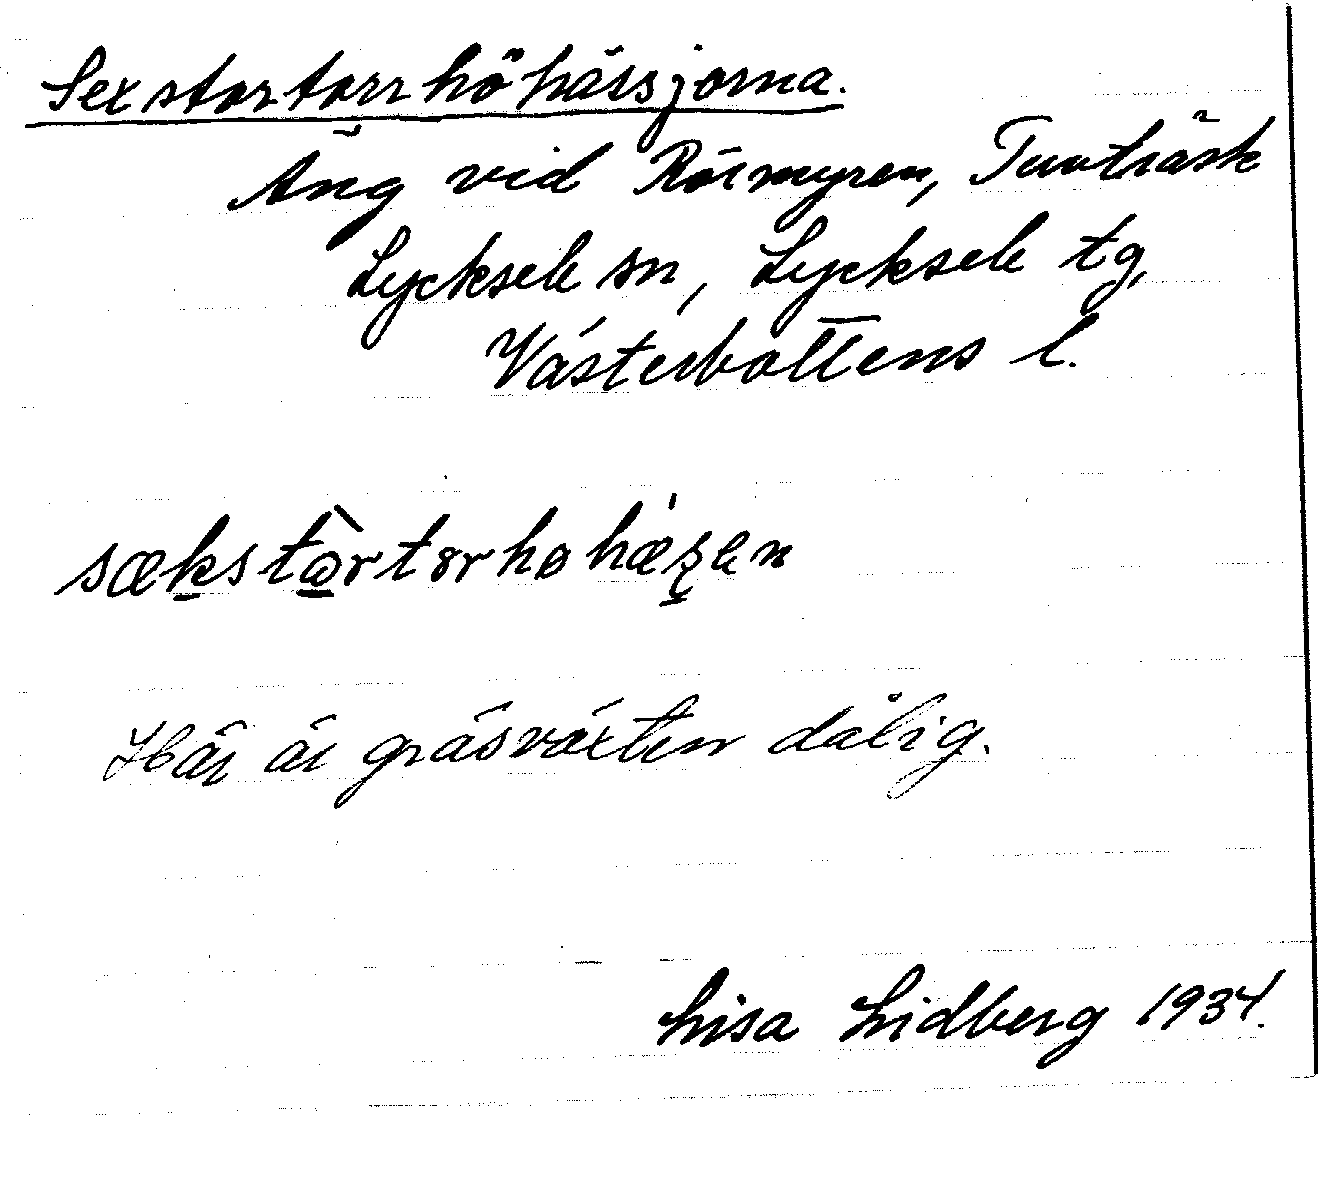 Sexstortorrhöhässjorna.
Äng vid Rörmyren, Tuvträsk
Lycksele sn, Lycksele tg,
Västerbottens l.
sækstørtorhøhæʂen
Här är gräsväxten dålig.
Lisa Lidberg 1934.